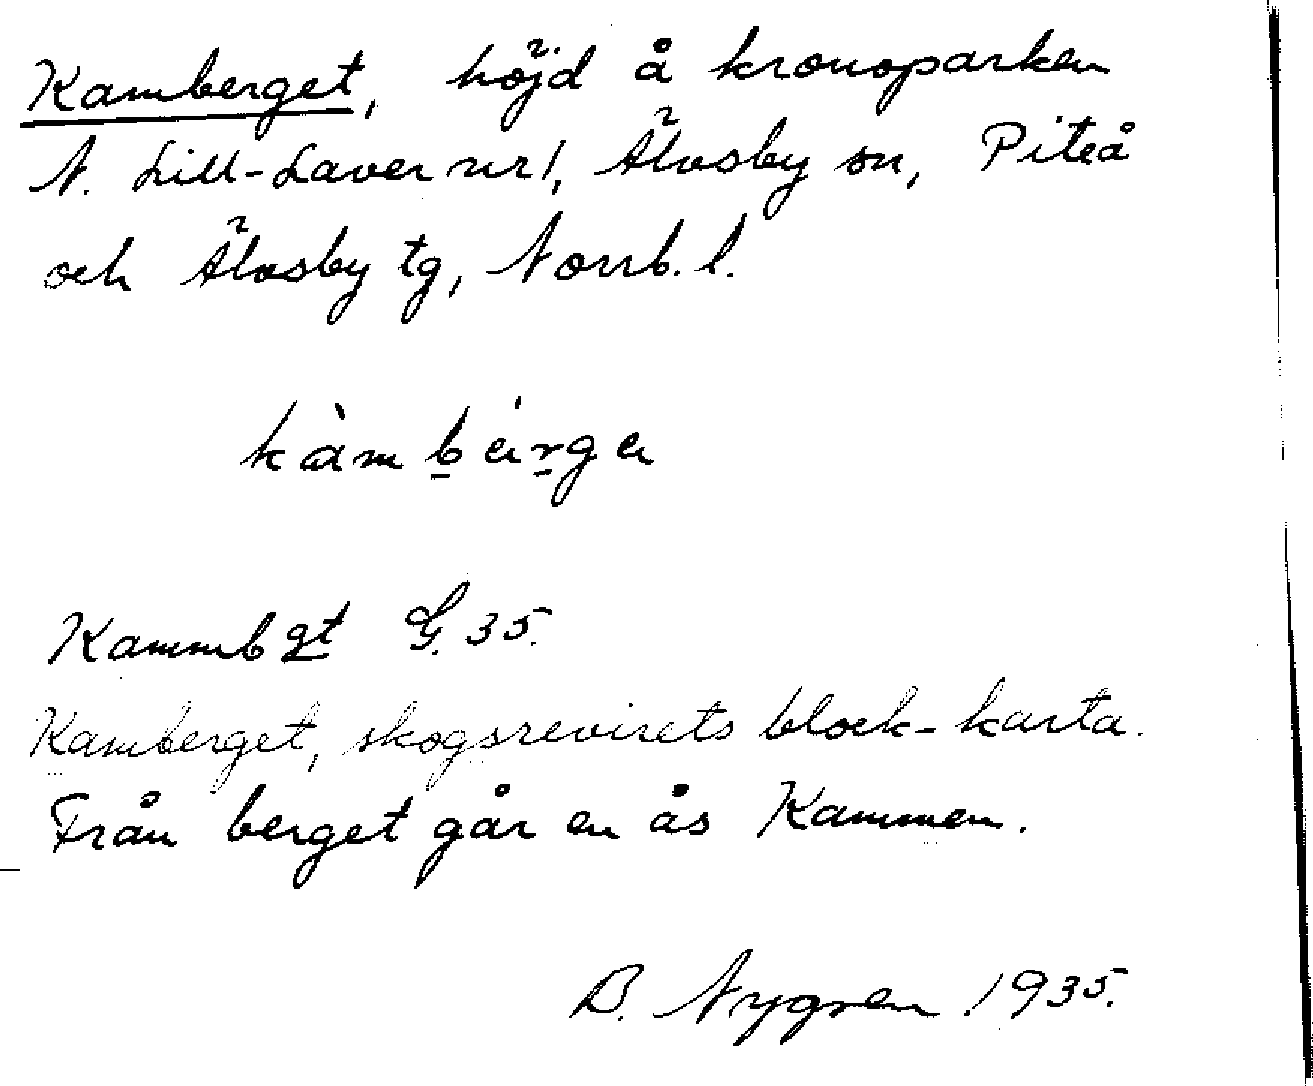 Kamberget, höjd å kronoparken
N. Lill-Laver nr 1, Älvsby sn, Piteå
och Älvsby tg, Norrb. l.
Kammbgt G. 35.
Kamberget, skogsrevirets block-karta.
Från berget går en ås Kammen.
B. Nygren 1935.